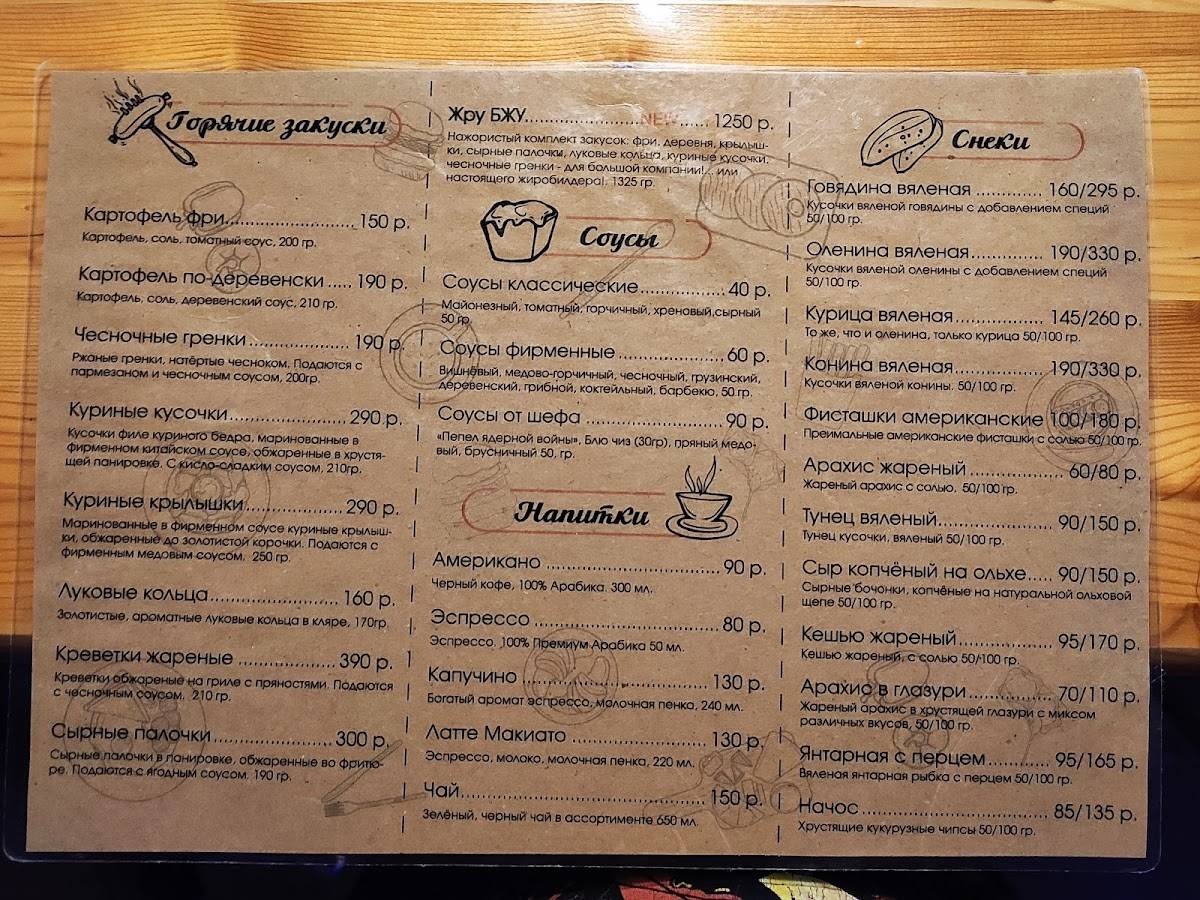 Горячие закуски
Картофель фри.................... 150 р.
Картофель, соль, томатный соус, 200 гр.
Картофель по-деревенски ..... 190 р.
Картофель, соль, деревенский соус, 210 гр.
Чесночные гренки .................. 190 р.
Ржаные гренки, натёртые чесноком. Подаются с
пармезаном и чесночным соусом, 200гр.
Куриные кусочки.................. 290 р.
Кусочки филе куриного бедра, маринованные в
фирменном китайском соусе, обжаренные в хрустя-
щей панировке. С кисло-сладким соусом, 210гр.
Куриные крылышки............... 290 р.
Маринованные в фирменном соусе куриные крылыш-
ки, обжаренные до золотистой корочки. Подаются с
фирменным медовым соусом. 250 гр.
Луковые кольца.................... 160 р.
Золотистые, ароматные луковые кольца в кляре, 170гр.
Креветки жареные ............... 390 р.
Креветки обжареные на гриле с пряностями. Подаются
с чесночным соусом. 210 гр.
Сырные палочки.................. 300 р.
Сырные палочки в панировке, обжаренные во фритю-
ре. Подаются с ягодным соусом. 190 гр.
Жру БЖУ.................NEW...... 1250 р.
Нажористый комплект закусок: фри, деревня, крылыш-
ки, сырные палочки, луковые кольца, куриные кусочки,
чесночные гренки - для большой компании!... или
настоящего жиробилдера!. 1325 гр.
Соусы
Соусы классические............... 40 р.
Майонезный, томатный, горчичный, хреновый,сырный
50 гр.
Соусы фирменные .................. 60 р.
Вишнёвый, медово-горчичный, чесночный, грузинский,
деревенский, грибной, коктейльный, барбекю, 50 гр.
Соусы от шефа ..................... 90 р.
«Пепел ядерной войны», Блю чиз (30гр), пряный медо-
вый, брусничный 50, гр.
Напитки
Американо ........................... 90 р.
Черный кофе, 100% Арабика. 300 мл.
Эспрессо .............................. 80 р.
Эспрессо, 100% Премиум Арабика 50 мл.
Капучино .............................. 130 р.
Богатый аромат эспрессо, молочная пенка, 240 мл.
Латте Макиато ..................... 130 р.
Эспрессо, молоко, молочная пенка, 220 мл.
Чай....................................... 150 р.
Зелёный, черный чай в ассортименте 650 мл.
Снеки
Говядина вяленая ............ 160/295 р.
Кусочки вяленой говядины с добавлением специй
50/100 гр.
Оленина вяленая............. 190/330 р.
Кусочки вяленой оленины с добавлением специй
50/100 гр.
Курица вяленая ............... 145/260 р.
То же, что и оленина, только курица 50/100 гр.
Конина вяленая............... 190/330 р.
Кусочки вяленой конины. 50/100 гр.
Фисташки американские 100/180 р.
Преимальные американские фисташки с солью 50/100 гр.
Арахис жареный ................. 60/80 р.
Жареный арахис с солью, 50/100 гр.
Тунец вяленый.................... 90/150 р.
Тунец кусочки, вяленый 50/100 гр.
Сыр копчёный на ольхе..... 90/150 р.
Сырные бочонки, копчёные на натуральной ольховой
щепе 50/100 гр.
Кешью жареный................. 95/170 р.
Кешью жареный, с солью 50/100 гр.
Арахис в глазури............... 70/110 р.
Жареный арахис в хрустящей глазури с миксом
различных вкусов, 50/100 гр.
Янтарная с перцем............ 95/165 р.
Вяленая янтарная рыбка с перцем 50/100 гр.
Начос ................................ 85/135 р.
Хрустящие кукурузные чипсы 50/100 гр.